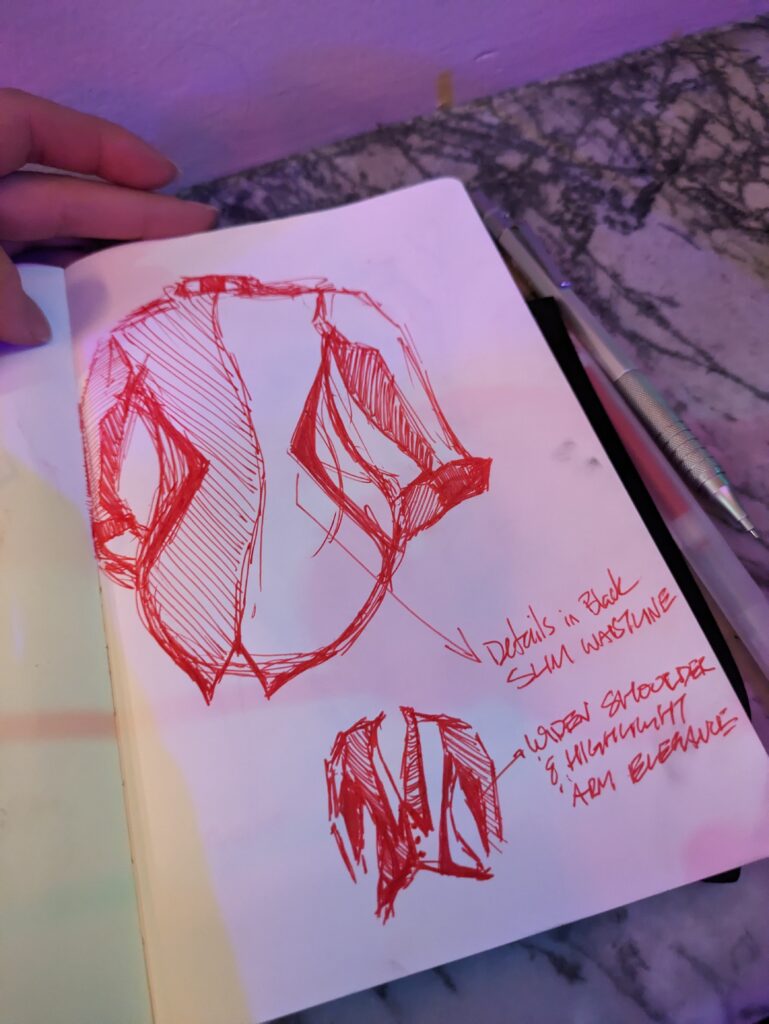 Details in Black
SLIM WAISTLINE
WIDEN SHOULDER
& HIGHLIGHT
ARM ELEGANCE